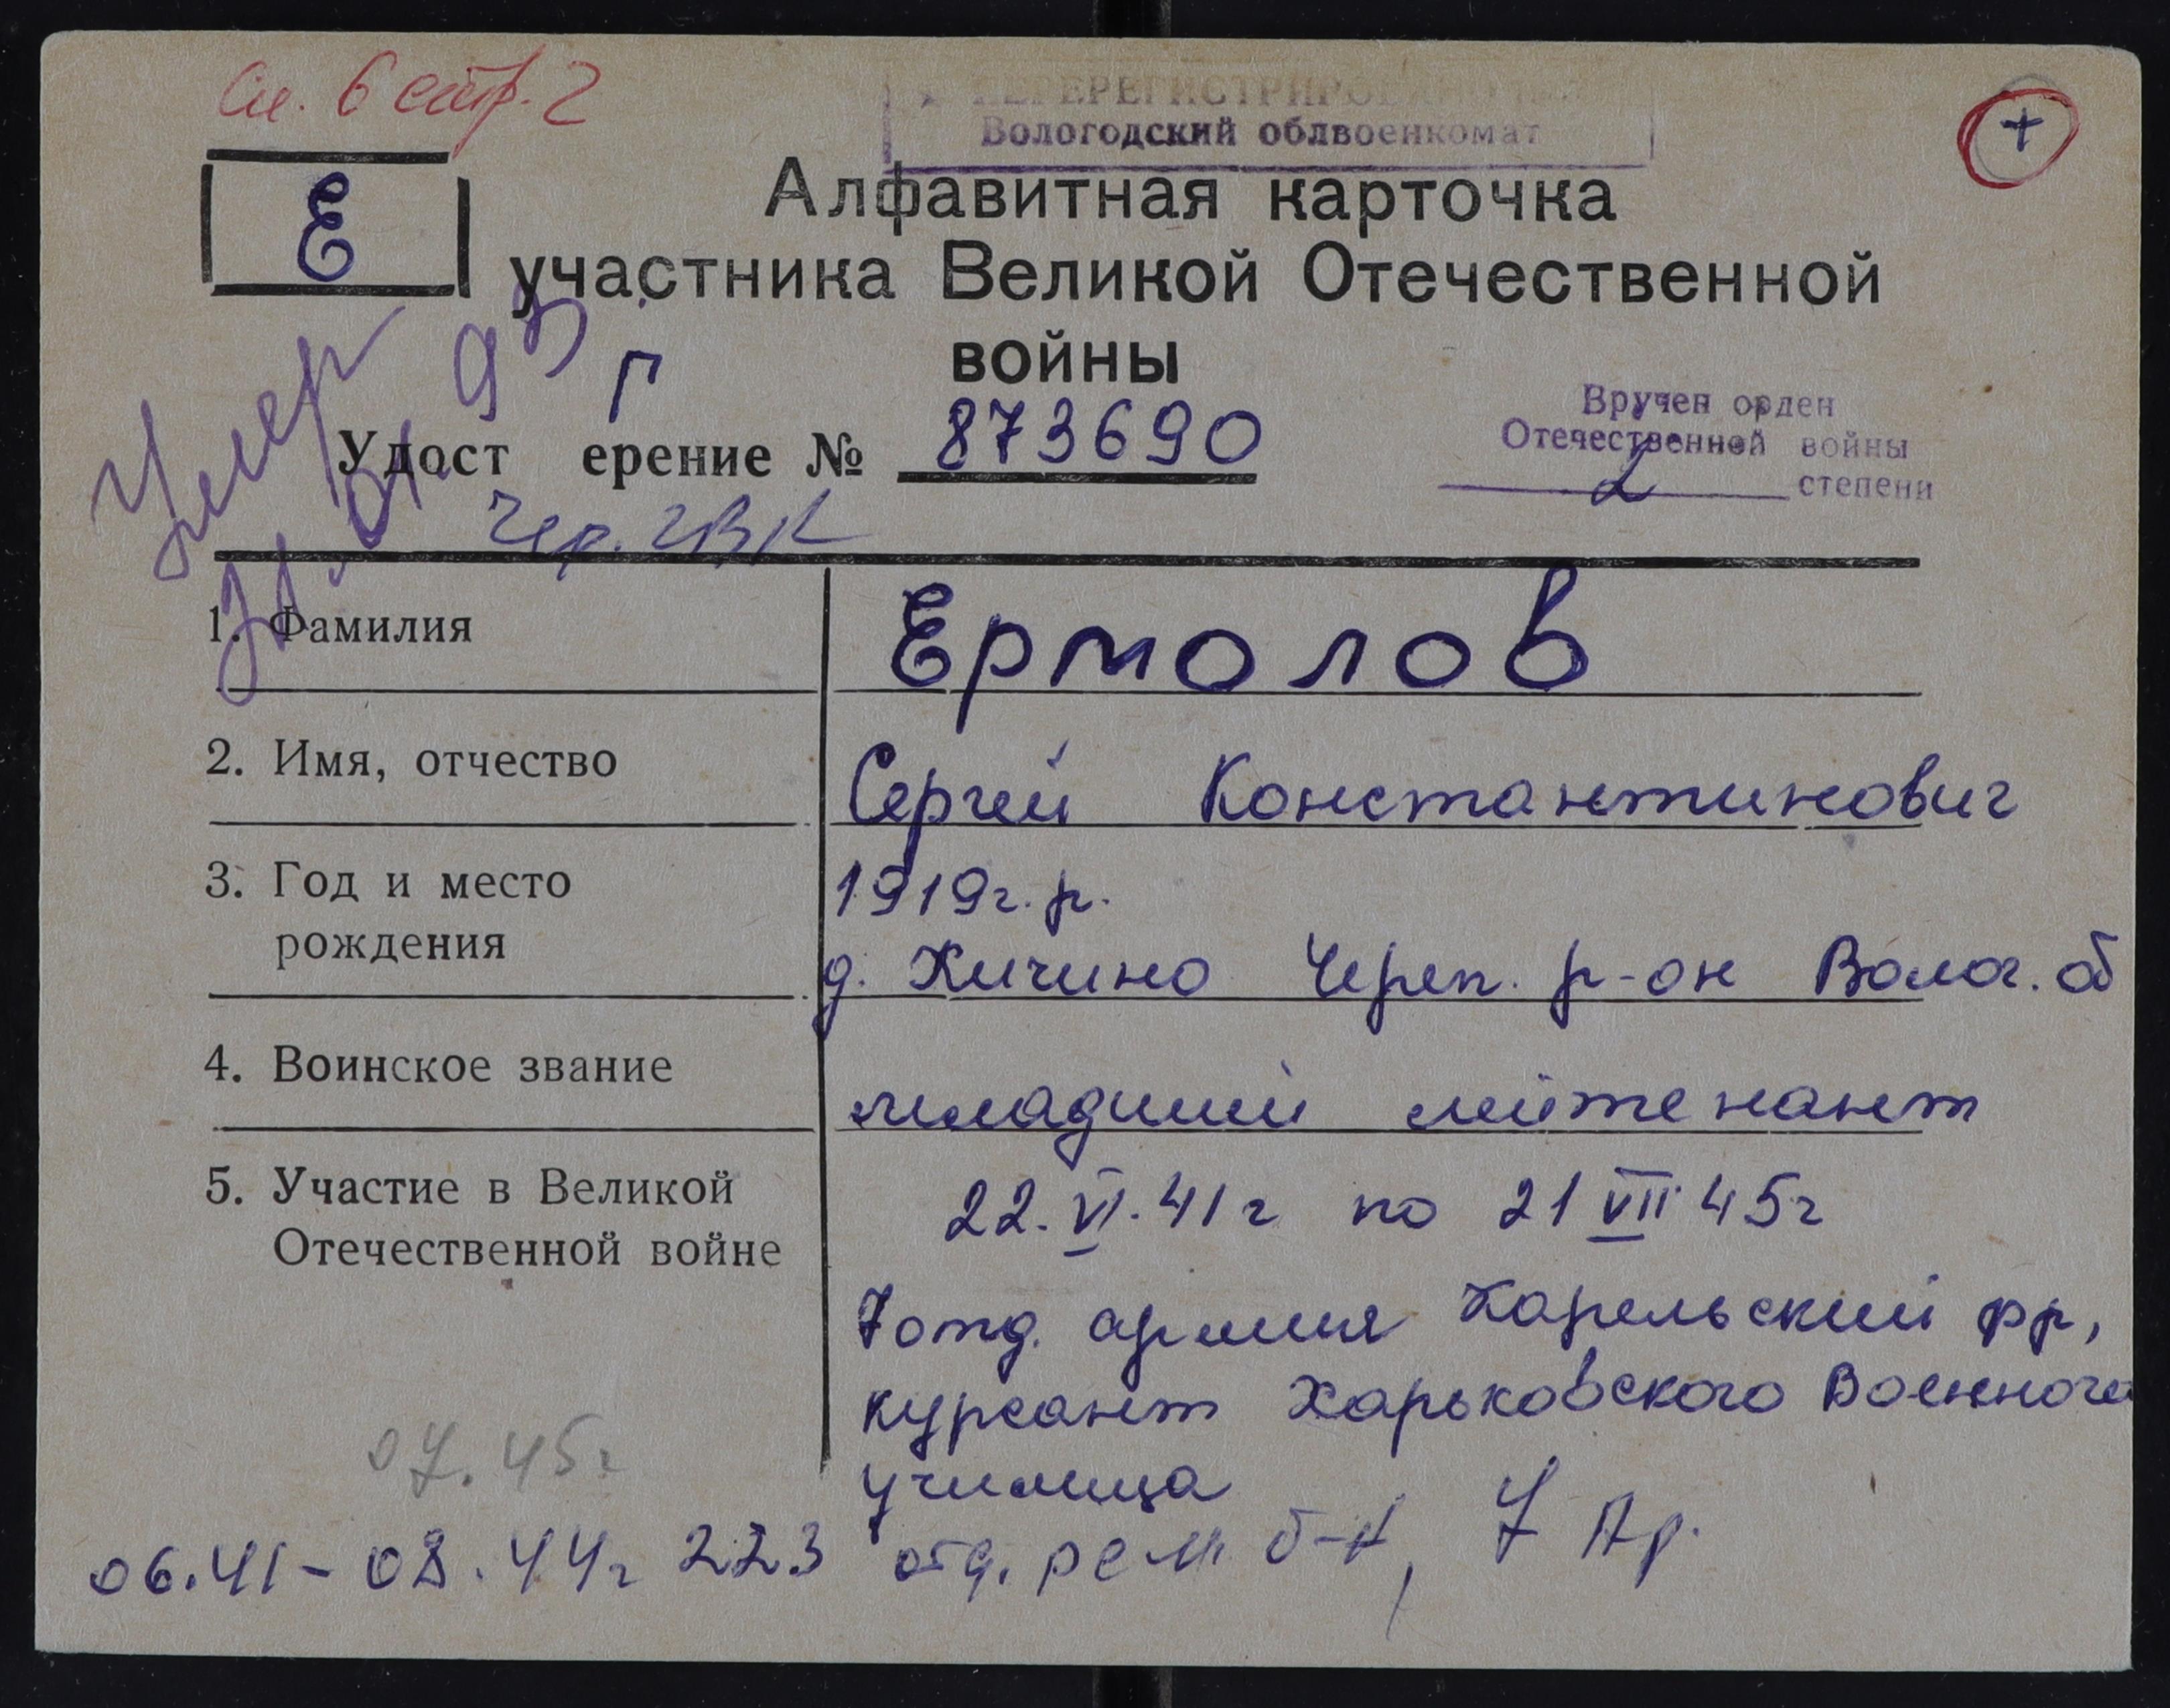 См. 6 стр. 2
ПЕРЕРЕГИСТРИРОВАНО
Вологодский облвоенкомат
+
Е
Алфавитная карточка
участника Великой Отечественной
войны
Умер
95
г
Удост ерение № 873690
Вручен орден
Отечественной войны
2 степени
Чер. ГВК
1. Фамилия Ермолов
2. Имя, отчество Сергей Константинович
3. Год и место 1919г. р.
рождения д. Хичино Череп. р-он Волог. об
4. Воинское звание младший лейтенант
5. Участие в Великой 22.VI.41г по 21 VII 45г
Отечественной войне
7 отд. армия Карельский фр,
курсант Харьковского Военного
училища
07.45г
06.41-08.44г 223 отд. рем б-н, 7 Ар.